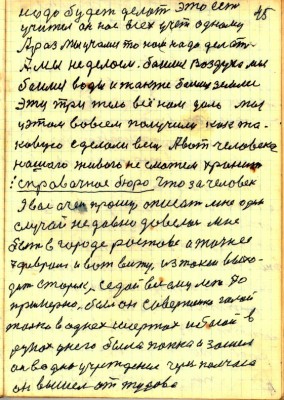 45
надо будет делат это есть
учител он нас всех учет одному
А раз мы узнали то нам надо делать
А мы не делоем. боимся воздуха мы
боимся воды и также боимся земли
Эти три тела всё нам дали мы
у этом во всем получили как та-
ковую сделали вещ А вот человека
нашого живого не сможем хранить
справочное бюро что за человек
Я вас очен прошу описат мне один
случай недавно довелос мне
быть в городе ростове а точнее
7 февраля и вот вижу, из
дит старик, седой ему лет 70
примерно, был он совершено голой
только в одних шортах и босой в
руках у него была папка и зашел
он в одно учреждение через полчаса
он вышел от тудова